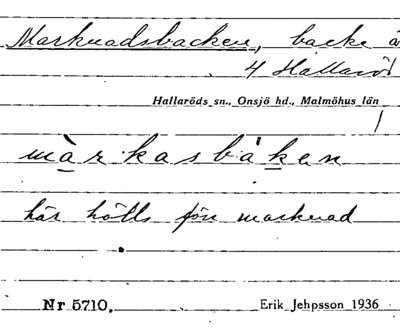 Marknadsbacken, backe å
4 Hallaröd
Hallaröds sn., Onsjö hd., Malmöhus län
1
màrkasbáken
här hölls förr marknad
Nr 5710. Erik Jehpsson 1936